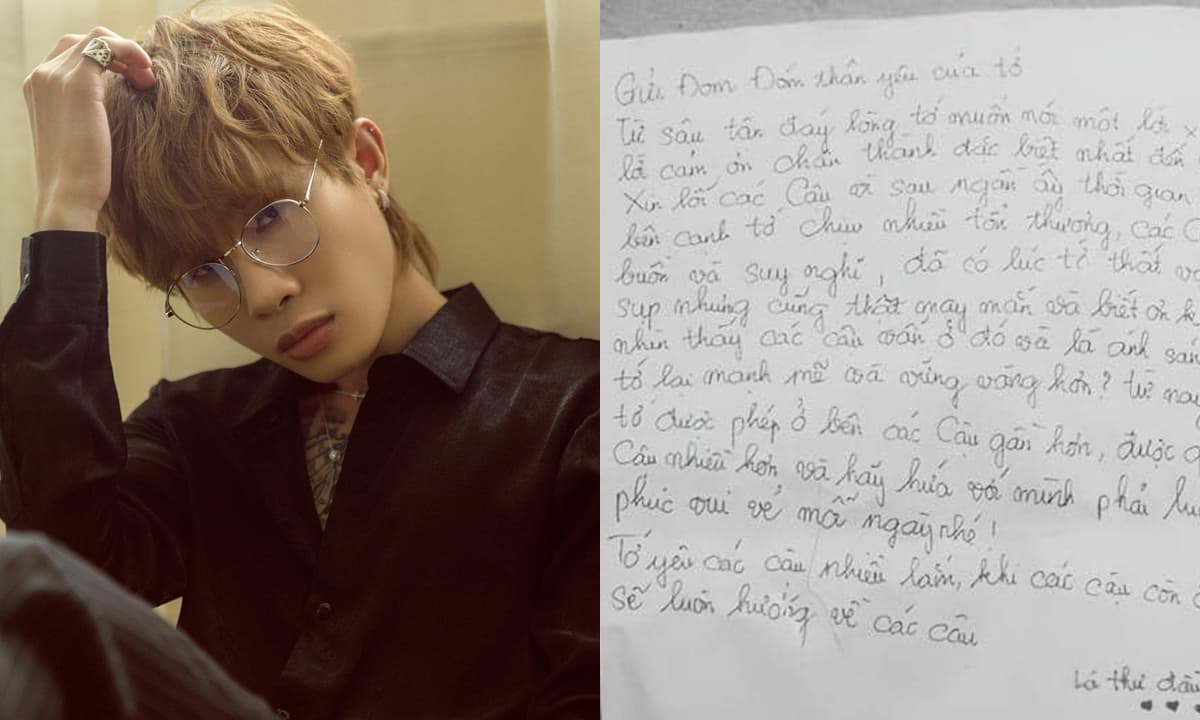 Gửi Đom Đóm thân yêu của tớ
Từ sâu tân đáy lòng tớ muốn nói một lời x
là cảm ơn chân thành đặc biệt nhất đến
Xin lỗi các Cậu vì sau ngần ấy thời gian
bên cạnh tớ chịu nhiều tổn thương, các C
buồn và suy nghĩ, đã có lúc tớ thất v
sụp nhưng cũng thật may mắn và biết ơn k
nhìn thấy các cậu vẫn ở đó và là ánh sán
tớ lại mạnh mẽ và vững vàng hơn? từ nay
tớ được phép ở bên các Cậu gần hơn, được
Cậu nhiều hơn và hãy hứa với mình phải lu
phúc vui vẻ mỗi ngày nhé!
Tớ yêu các cậu nhiều lắm, khi các cậu còn
sẽ luôn hướng về các cậu
Lá thư đầu